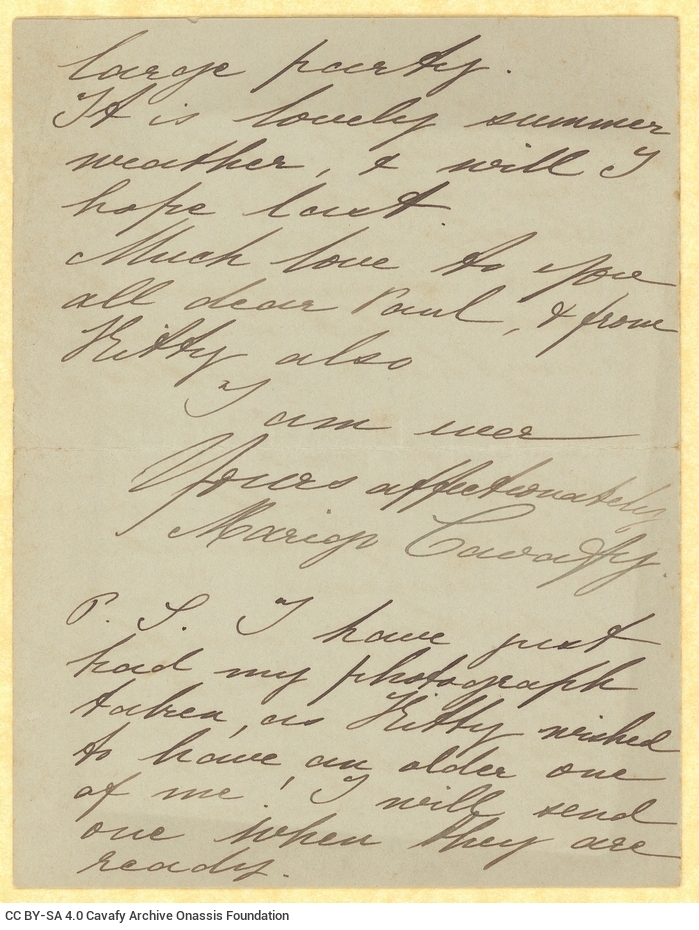 large party.
It is lovely summer
weather, & will I
hope last.
Much love to you
all dear Paul, & from
Kitty also
I am ever
Yours affectionately
Marigo Cavafy.
P. S. I have just
had my photograph
taken, as Kitty wished
to have an older one
of me! I will send
one when they are
ready.
CC BY-SA 4.0 Cavafy Archive Onassis Foundation